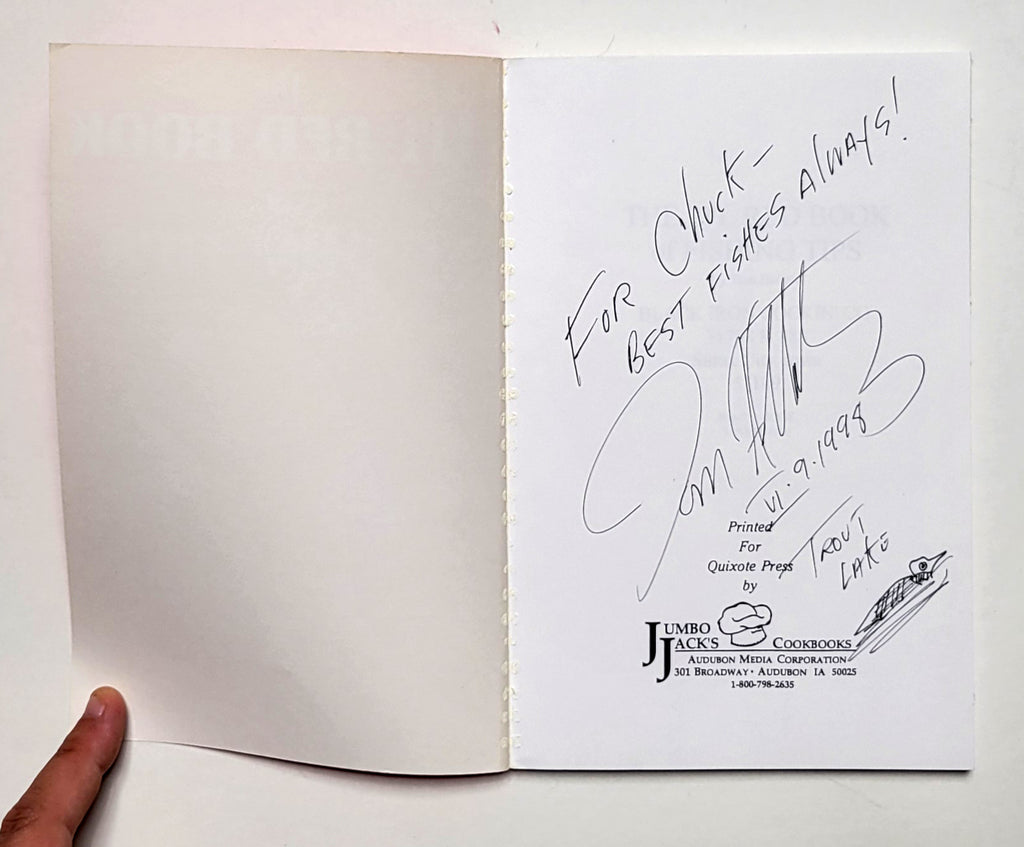 For Chuck –
BEST FISHES ALWAYS!
VI. 9. 1998
TROUT
LAKE
Printed
For
Quixote Press
by
JUMBO
JACK'S COOKBOOKS
AUDUBON MEDIA CORPORATION
301 BROADWAY • AUDUBON IA 50025
1-800-798-2635